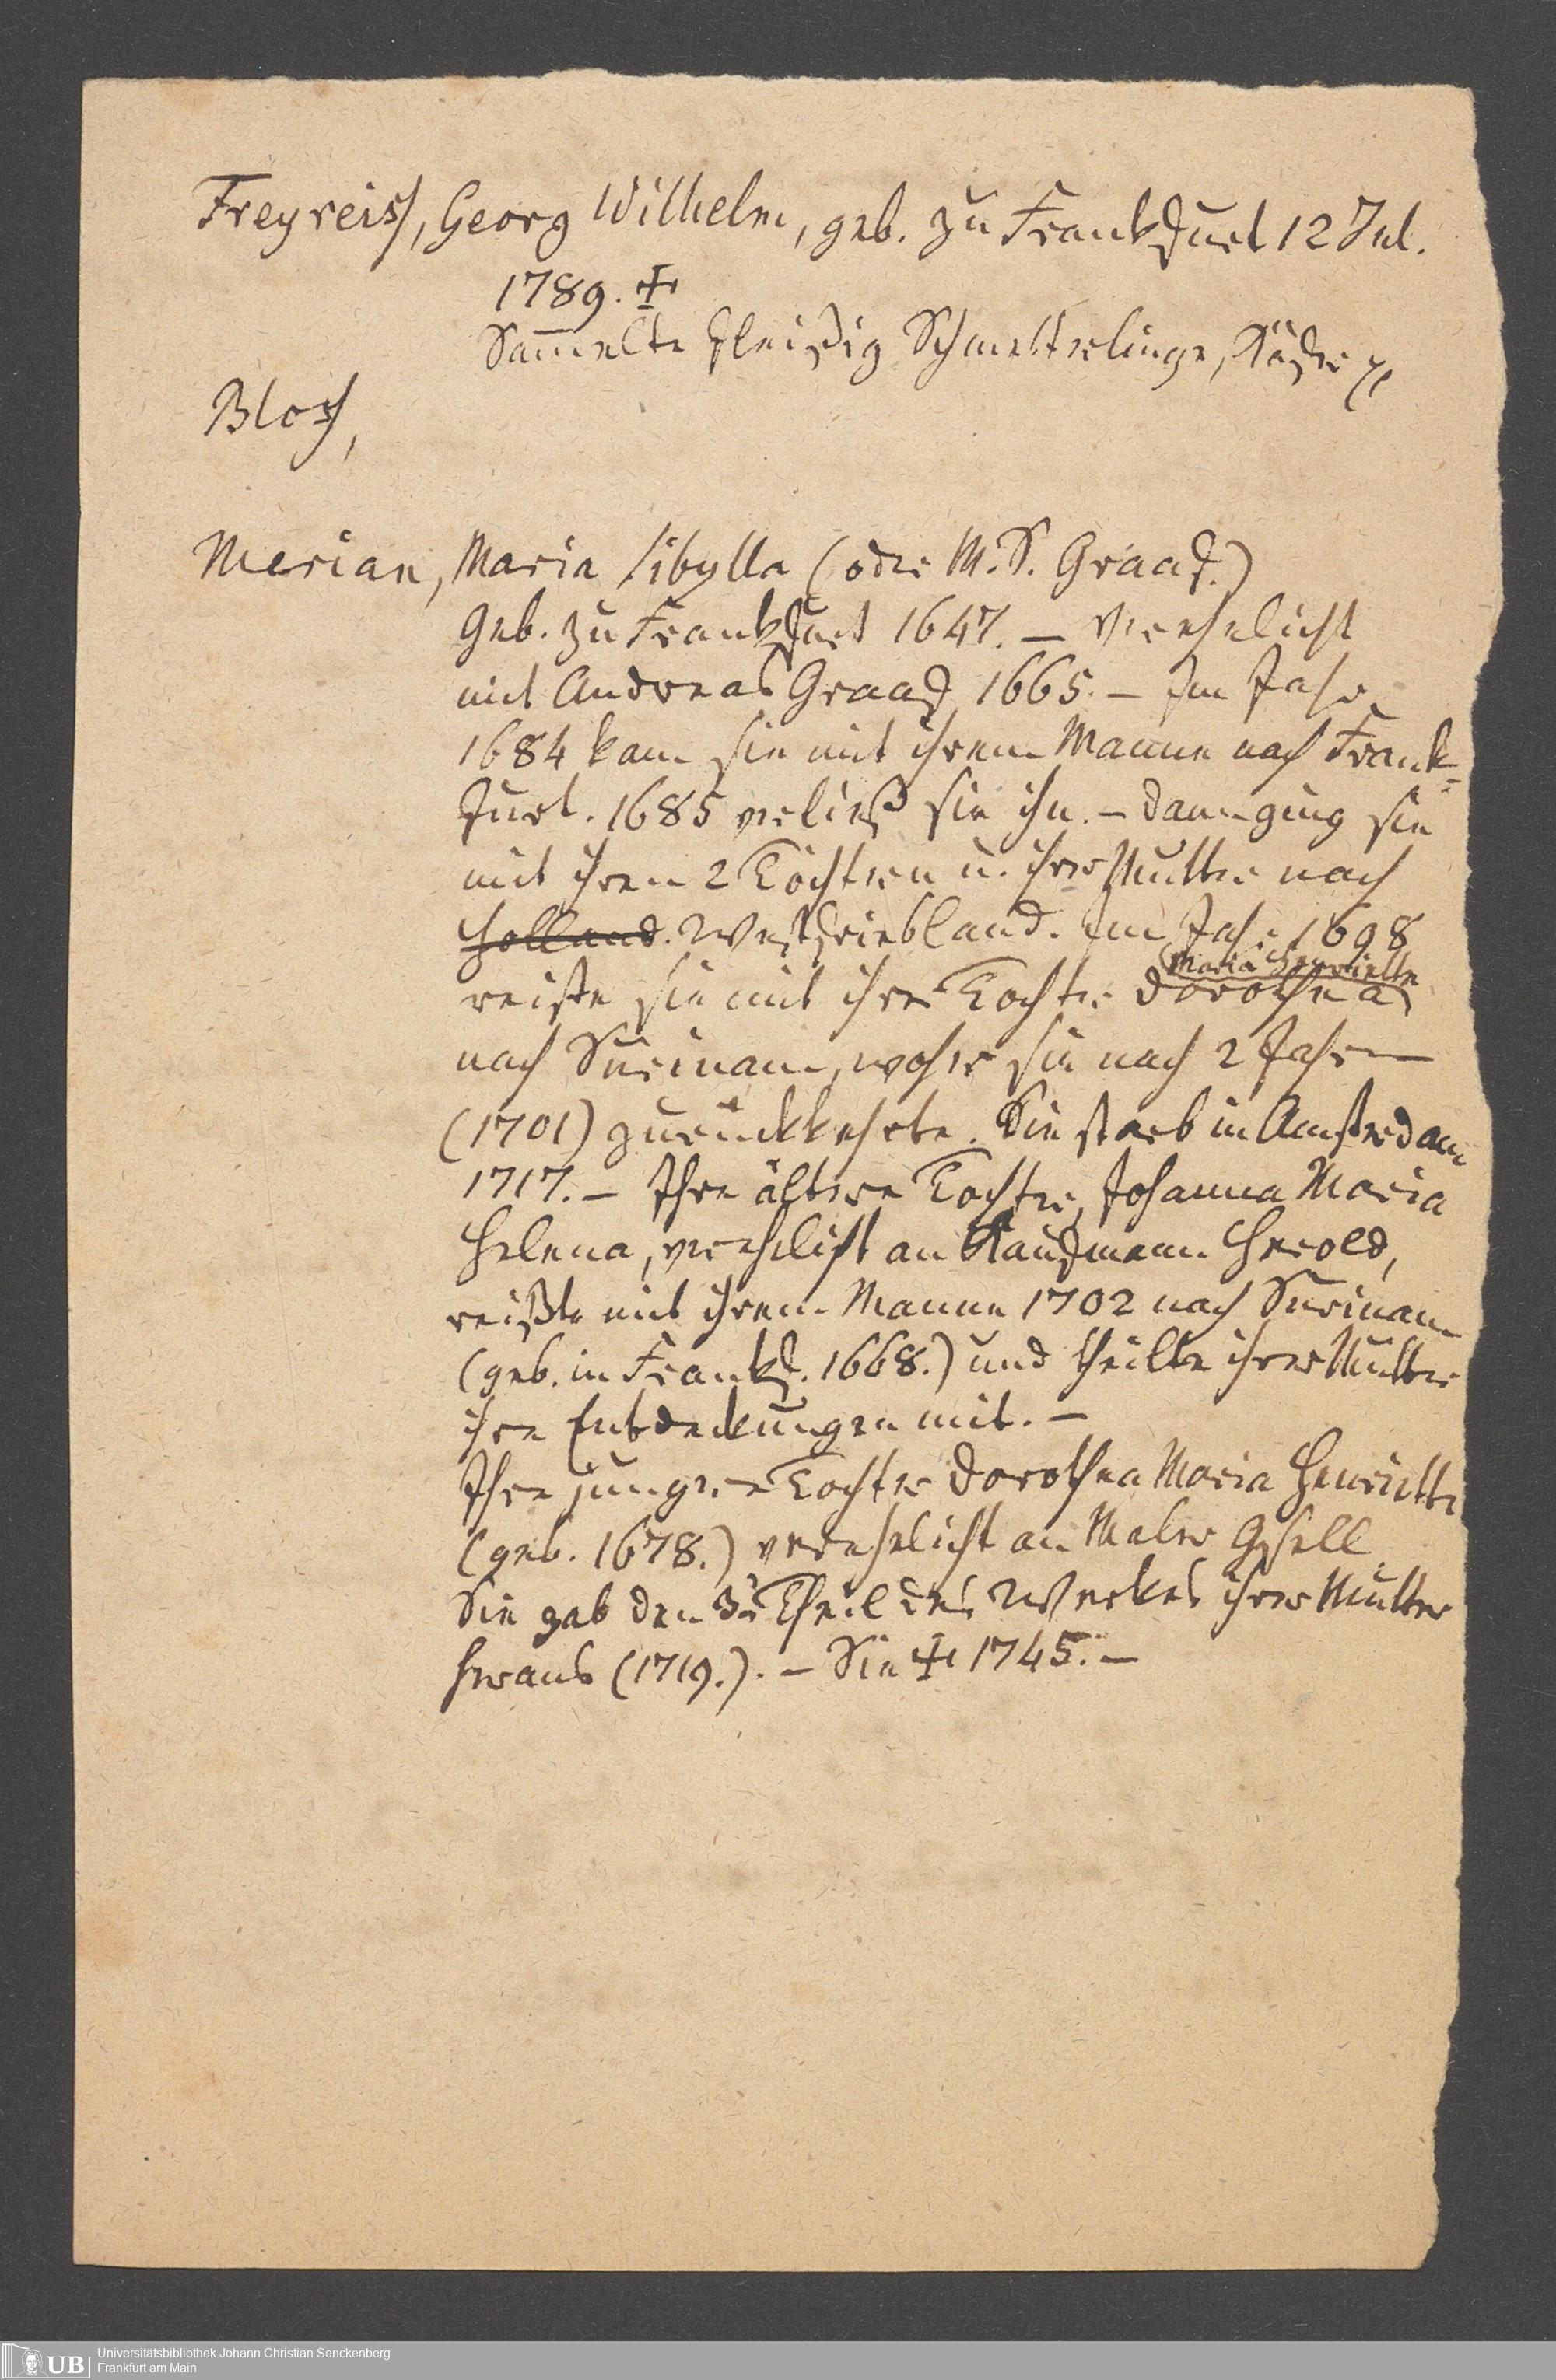 Freyreiss, Georg Wilhelm, geb. zu Frankfurt 12 Jul.
1789. ✠
Sam̅elte fleißig Schmetterlinge, Käfer
Bloss,
Merian, Maria Sibylla (oder M. S. Graaf.)
Geb. zu Frankfurt 1647. — Verehelicht
mit Andreas Graaf 1665. — Im Jahr
1684 kam sie mit ihrem Manne nach Frank=
furt. 1685 verließ sie ihn. — Dann ging sie
mit ihren 2 Töchtern u. ihrer Mutter nach
Holland. Westfriesland. Im Jahr 1698
Maria Henriette
reiste sie mit ihrer Tochter Dorothea
nach Surinam, woher sie nach 2 Jahren
(1701) zurückkehrte. Sie starb in Amsterdam
1717. — Ihre ältere Tochter, Johanna Maria
Helena, verehelicht an Kaufmann Herold,
reißte mit ihrem Manne 1702 nach Surinam
(geb. in Frankf. 1668.) und theilte ihrer Mutter
ihre Entdeckungen mit. —
Ihre jungere Tochter Dorothea Maria Henriette
(geb. 1678.) verehelicht an Maler Gsell.
Sie gab den 3n Theil des Werkes ihrer Mutter
heraus (1719.). — Sie ✠ 1745. —
UB
Universitätsbibliothek Johann Christian Senckenberg
Frankfurt am Main